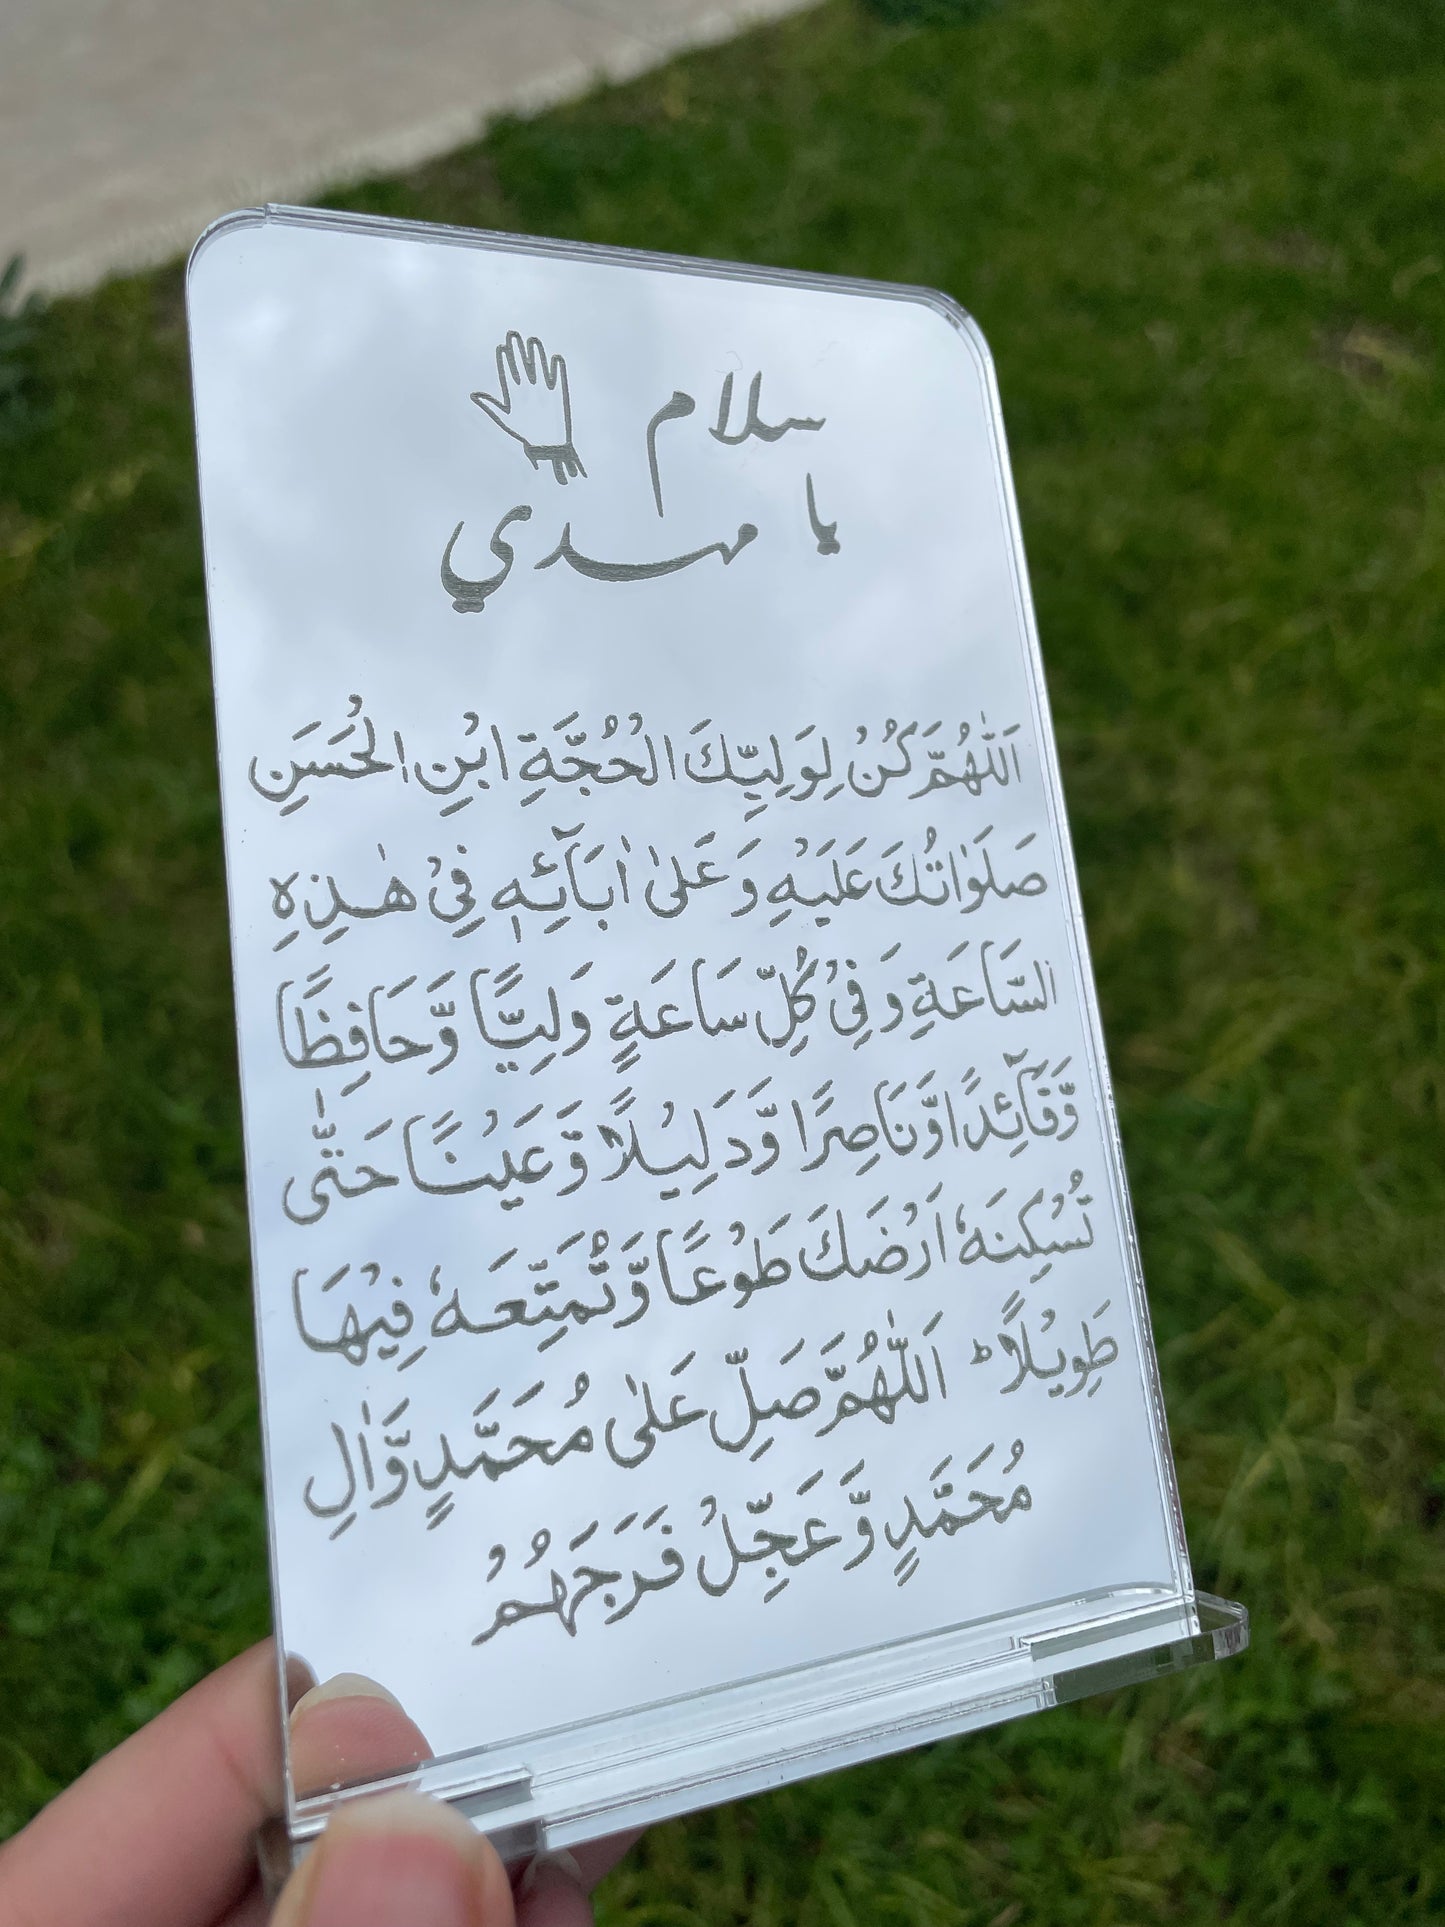 سلام
يا مهدي
اَللّٰهُمَّ كُنْ لِوَلِيِّكَ الْحُجَّةِ ابْنِ الْحَسَنِ
صَلَوٰاتُكَ عَلَيْهِ وَ عَلىٰ اٰبَآئِهٖ فِىْ هٰذِهِ
السَّاعَةِ وَ فِىْ كُلِّ سَاعَةٍ وَلِيًّا وَّحَافِظًا
وَّقَآئِدًا وَّنَاصِرًا وَّدَلِيْلًا وَّعَيْنًا حَتّٰى
تُسْكِنَهٗ اَرْضَكَ طَوْعًا وَّتُمَتِّعَهٗ فِيْهَا
طَوِيْلًاؕ اَللّٰهُمَّ صَلِّ عَلىٰ مُحَمَّدٍ وَّاٰلِ
مُحَمَّدٍ وَّعَجِّلْ فَرَجَهُمْ